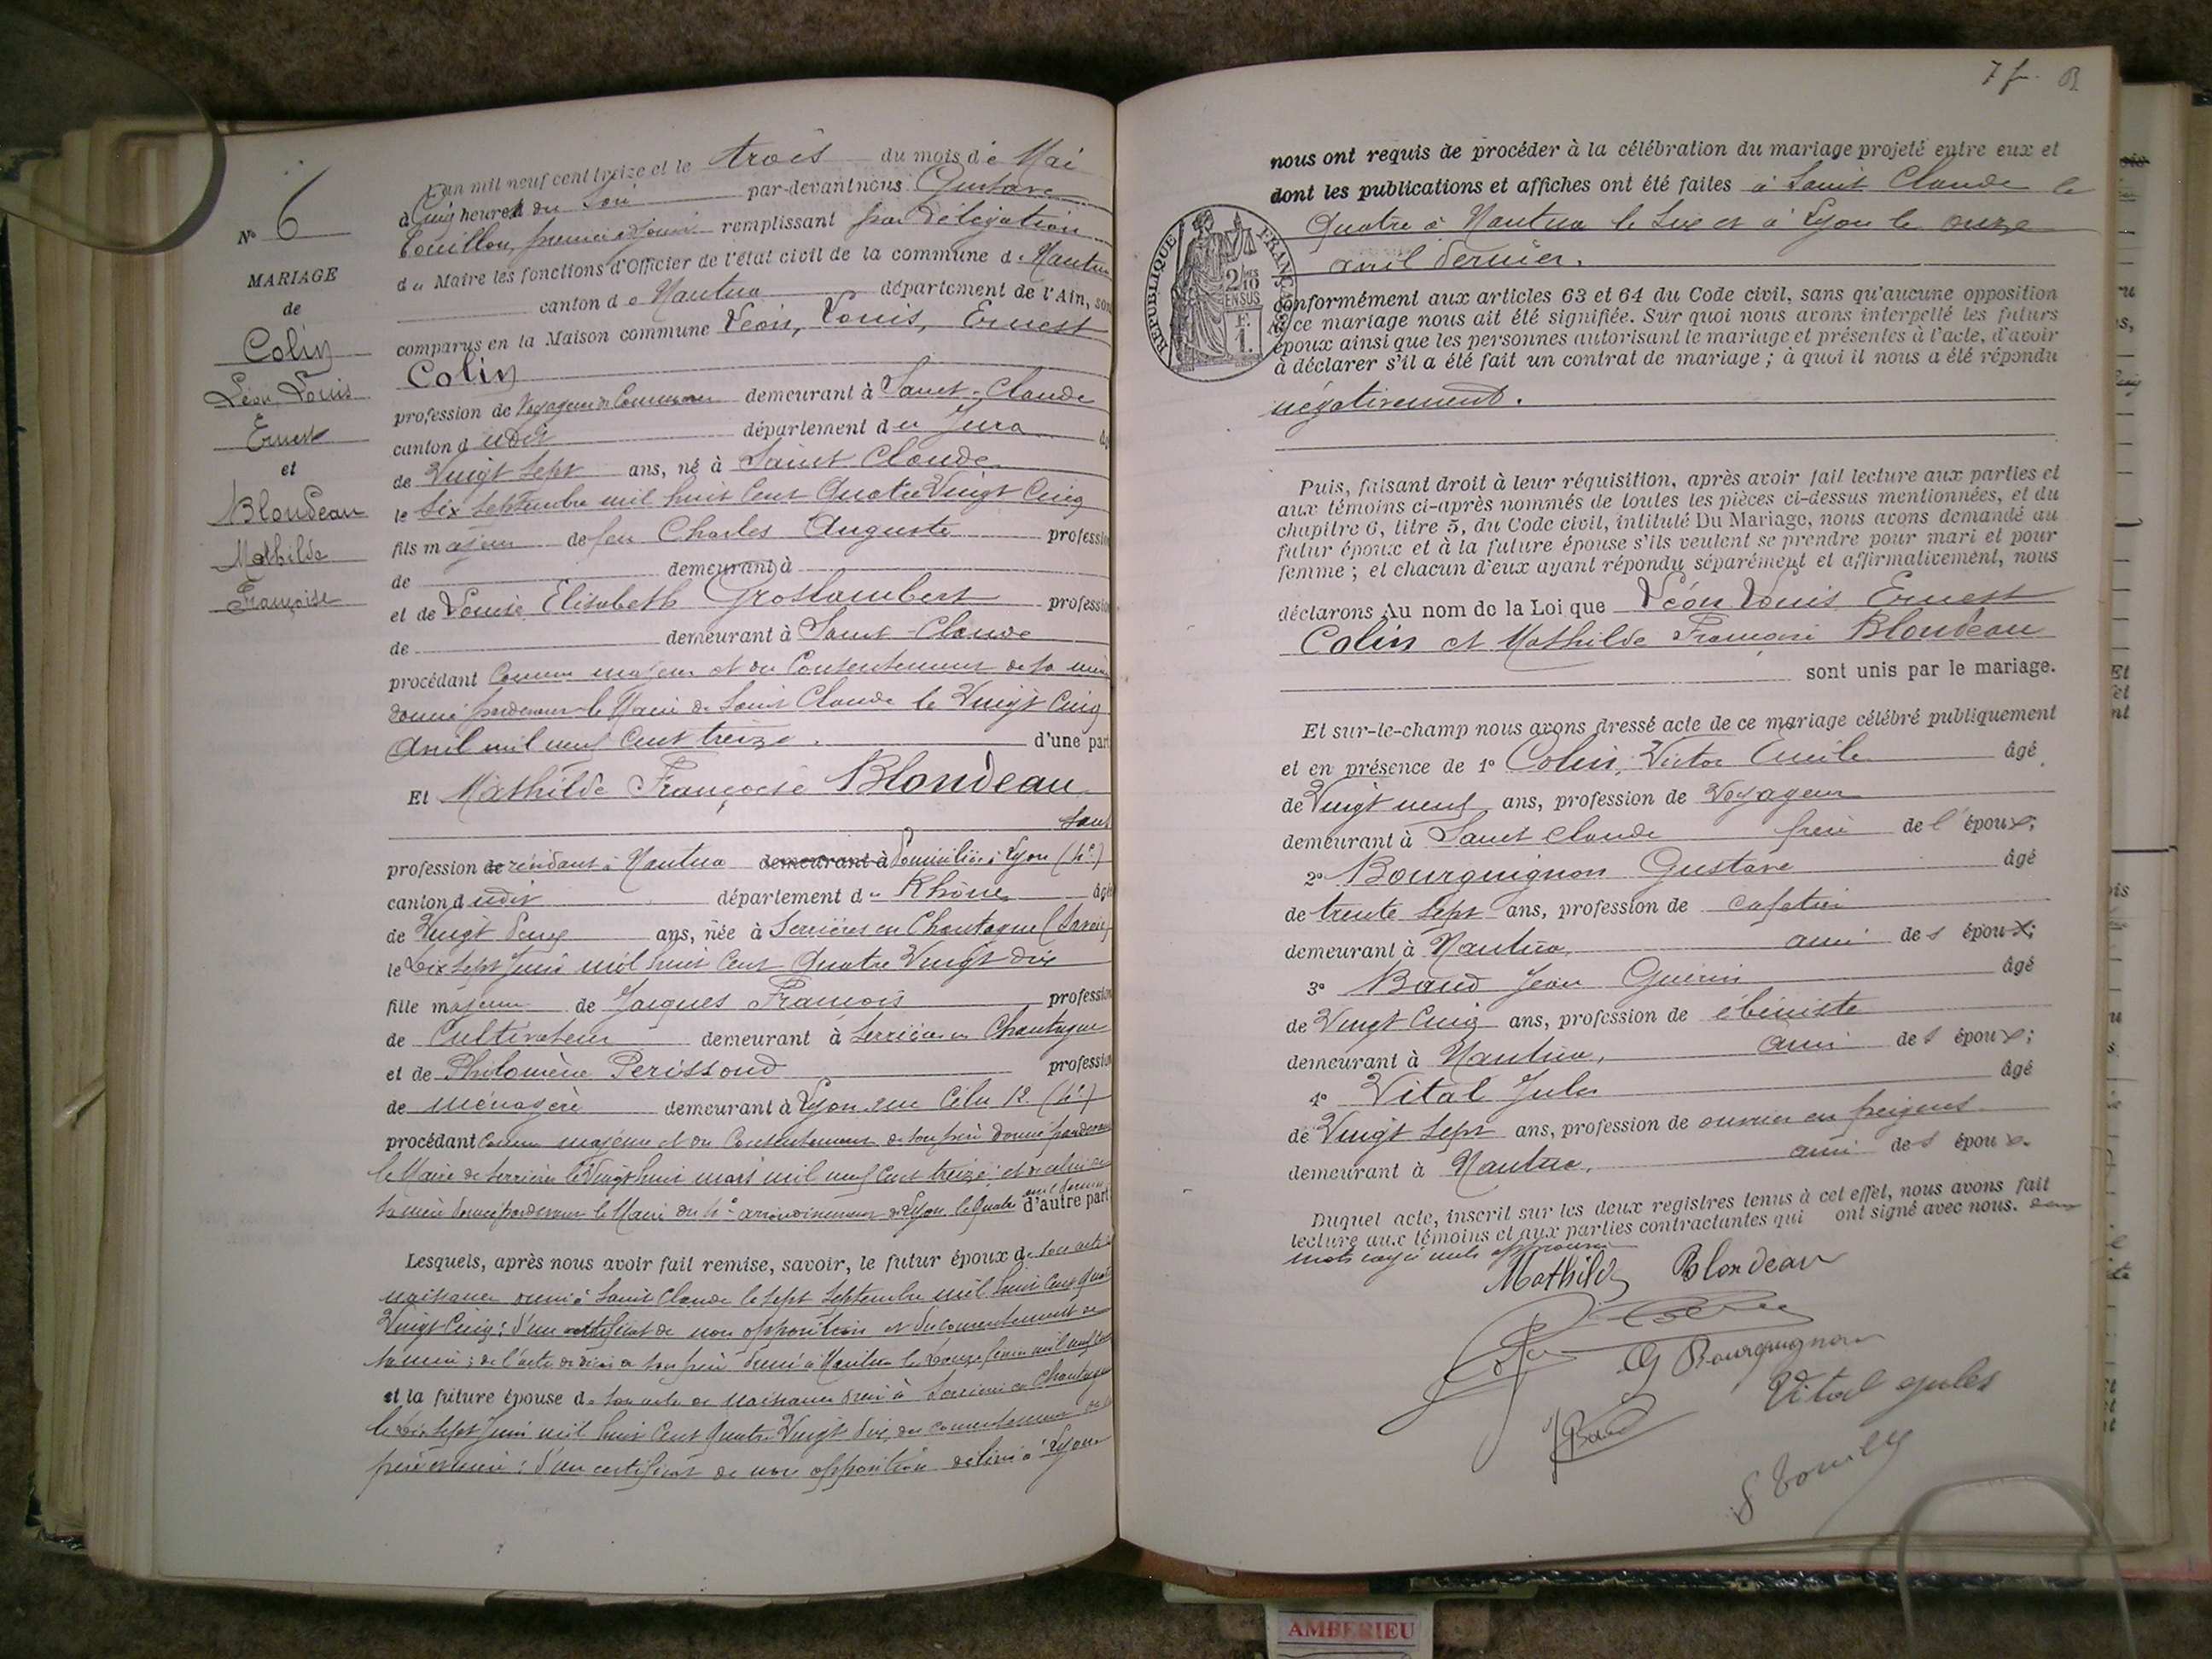 L'an mil neuf cent treize et le trois du mois de Mai
à Cinq heures du Soir par-devant nous Gustave
Touillon, premier adjoint remplissant par délégation
du Maire les fonctions d'Officier de l'état civil de la commune de Nantua
canton de Nantua département de l'Ain, sont
comparus en la Maison commune Léon, Louis, Ernest
Colin
profession de Voyageur de Commerce demeurant à Saint-Claude
canton d udit département du Jura âgé
de Vingt Sept ans, né à Saint Claude
le Six Septembre mil huit Cent Quatre Vingt Cinq
fils majeur de feu Charles Auguste profession
de demeurant à
et de Louise Elisabeth Groslambert profession
de demeurant à Saint-Claude
procédant Comme majeur et du Consentement de sa mère
donné pardevant le Maire de Saint Claude le Vingt Cinq
Avril mil neuf Cent treize. d'une part
Et Mathilde Françoise Blondeau
Sans
profession de résidant à Nantua demeurant à domiciliée à Lyon (4e)
canton d udit département du Rhône âgée
de Vingt Deux ans, née à Serrières en Chautagne (Savoie)
le Dix Sept Juin mil huit Cent Quatre Vingt dix
fille majeure de Jacques François profession
de Cultivateur demeurant à Serrières en Chautagne
et de Philomène Perissoud profession
de ménagère demeurant à Lyon rue Célu 12 (4e)
procédant comme majeure et du Consentement de son père donné pardevant
le Maire de Serrières le Vingt huit mars mil neuf Cent treize; et de celui de
sa mère donné pardevant le Maire du 4e arrondissement de Lyon le Quatre avril dernier d'autre part
Lesquels, après nous avoir fait remise, savoir, le futur époux de son acte de
naissance dressé à Saint Claude le Sept Septembre mil huit Cent Quatre
Vingt Cinq; d'un certificat de non opposition et du consentement de
sa mère; de l'acte de décès de son père dressé à Nantua le Douze
et la future épouse de son acte de naissance dressé à Serrières en Chautagne
le Dix Sept Juin mil huit Cent Quatre Vingt dix, du consentement de ses
père et mère; d'un certificat de non opposition délivré à Lyon
N° 6
MARIAGE
de
Colin
Léon Louis
Ernest
et
Blondeau
Mathilde
Françoise
7 f.
nous ont requis de procéder à la célébration du mariage projeté entre eux et
dont les publications et affiches ont été faites à Saint Claude le
Quatre à Nantua le Six et à Lyon le onze
avril dernier.
conformément aux articles 63 et 64 du Code civil, sans qu'aucune opposition
à ce mariage nous ait été signifiée. Sur quoi nous avons interpellé les futurs
époux ainsi que les personnes autorisant le mariage et présentes à l'acte, d'avoir
à déclarer s'il a été fait un contrat de mariage; à quoi il nous a été répondu
négativement.
RÉPUBLIQUE FRANÇAISE
2/10
EN SUS
F.
1.
Puis, faisant droit à leur réquisition, après avoir fait lecture aux parties et
aux témoins ci-après nommés de toutes les pièces ci-dessus mentionnées, et du
chapitre 6, titre 5, du Code civil, intitulé Du Mariage, nous avons demandé au
futur époux et à la future épouse s'ils veulent se prendre pour mari et pour
femme; et chacun d'eux ayant répondu séparément et affirmativement, nous
déclarons Au nom de la Loi que Léon Louis Ernest
Colin et Mathilde Françoise Blondeau
sont unis par le mariage.
Et sur-le-champ nous avons dressé acte de ce mariage célébré publiquement
et en présence de 1° Colin, Victor Emile âgé
de Vingt neuf ans, profession de Voyageur
demeurant à Saint Claude frère de l'époux;
2° Bourguignon Gustave âgé
de trente Sept ans, profession de cafetier
demeurant à Nantua, ami des époux;
3° Baud Jean Guérin âgé
de Vingt Cinq ans, profession de ébéniste
demeurant à Nantua, ami des époux;
4° Vital Jules âgé
de Vingt Sept ans, profession de ouvrier en peignes
demeurant à Nantua, ami des époux.
Duquel acte, inscrit sur les deux registres tenus à cet effet, nous avons fait
lecture aux témoins et aux parties contractantes qui ont signé avec nous. deux
mots rayés nuls approuvés
Mathilde Blondeau
Colin
G Bourguignon
Vital Jules
J Baud
AMBERIEU